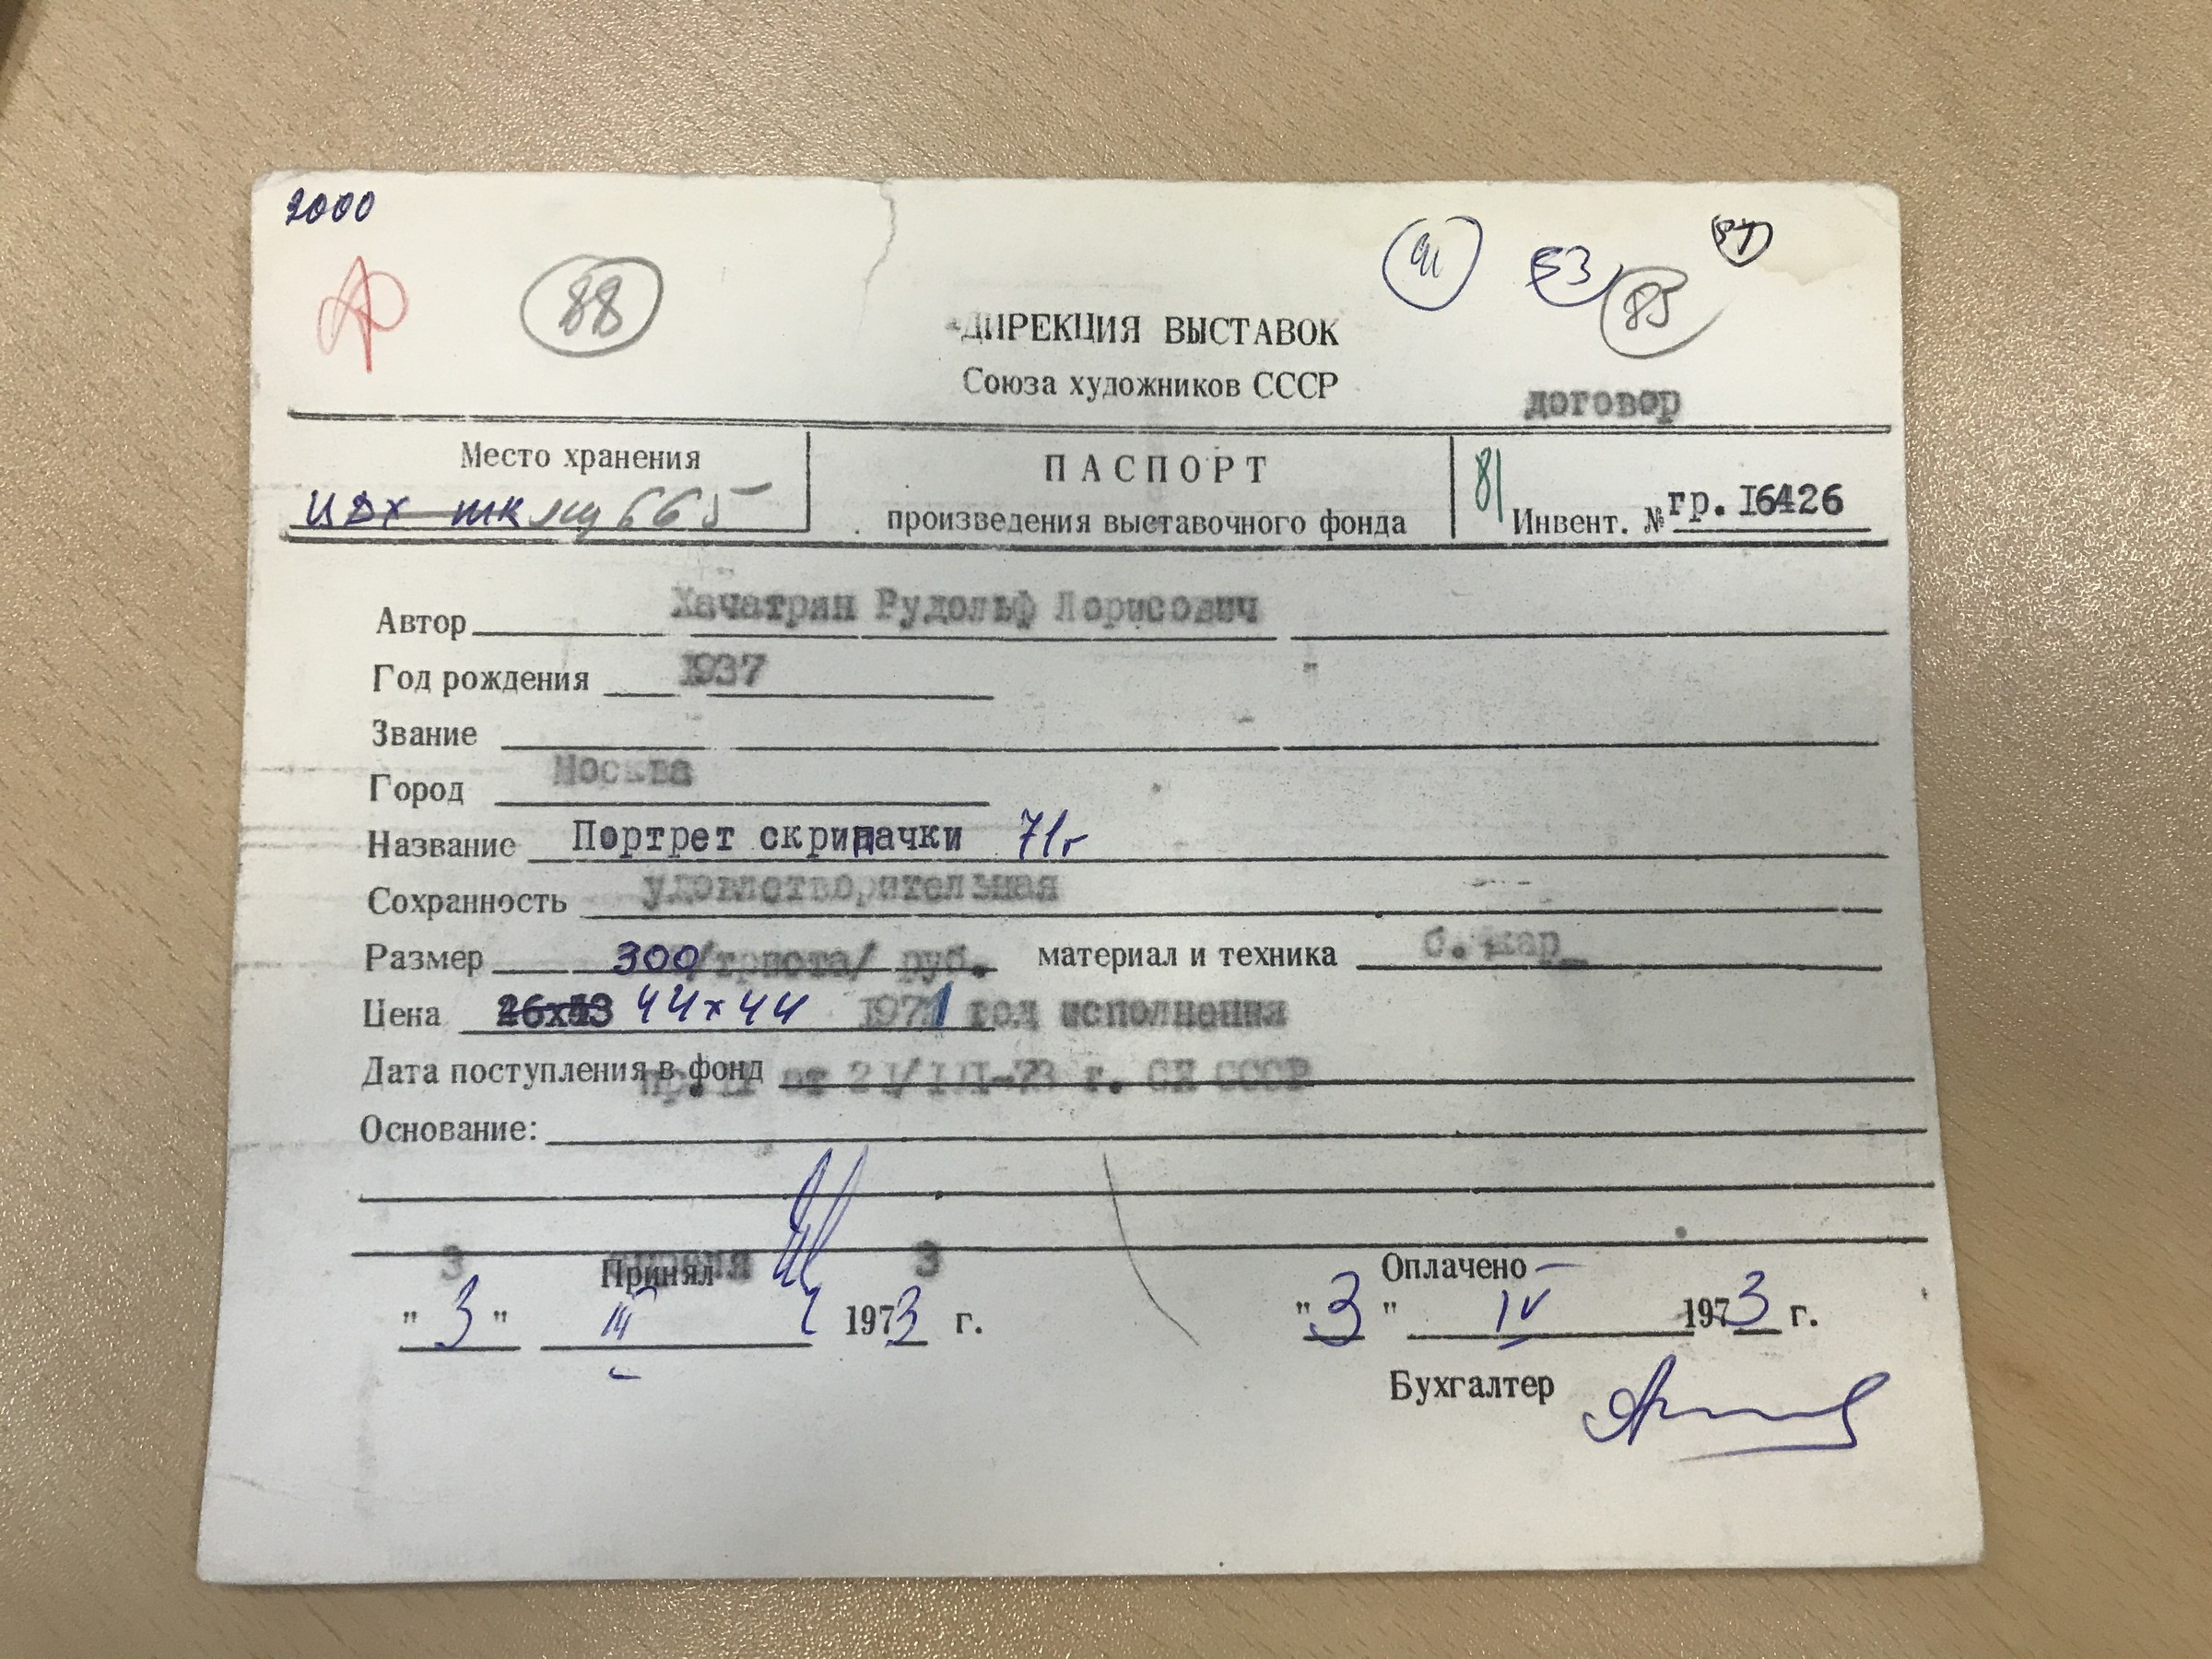 2000
88 91 53 85
ДИРЕКЦИЯ ВЫСТАВОК
Союза художников СССР
договор
Место хранения
ЦДХ
665
ПАСПОРТ
произведения выставочного фонда
81
Инвент. № гр. I6426
Автор Хачатрян Рудольф Лорисович
Год рождения 1937
Звание
Город Москва
Название Портрет скрипачки 71г
Сохранность удовлетворительная
Размер 300/триста/ руб. материал и техника б. кар
Цена 44х44 1971 год исполнения
Дата поступления в фонд
от 21/III-73 г. СХ СССР
Основание:
3 апреля 3
Принял Оплачено
" 3 " 1973 г. " 3 " IV 1973 г.
Бухгалтер